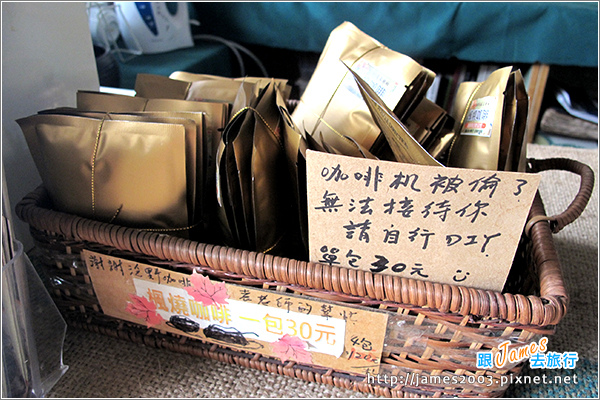 咖啡机被偷了
無法接待你
請自行DIY
單包30元
謝謝
咖啡
老老師的幫忙
瘋燒咖啡一包30元
4包
120元
跟James去旅行
http://james2003.pixnet.net